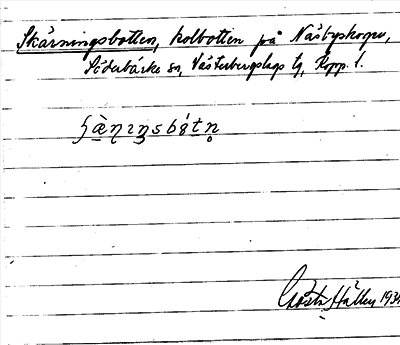 Skärningsbotten, kolbotten på Näsbyskogen,
Söderbärke sn, Västerbergslags tg, Kopp. l.
ʃæ̀ŋıŋsbótn̥
Gösta Hallén 1934